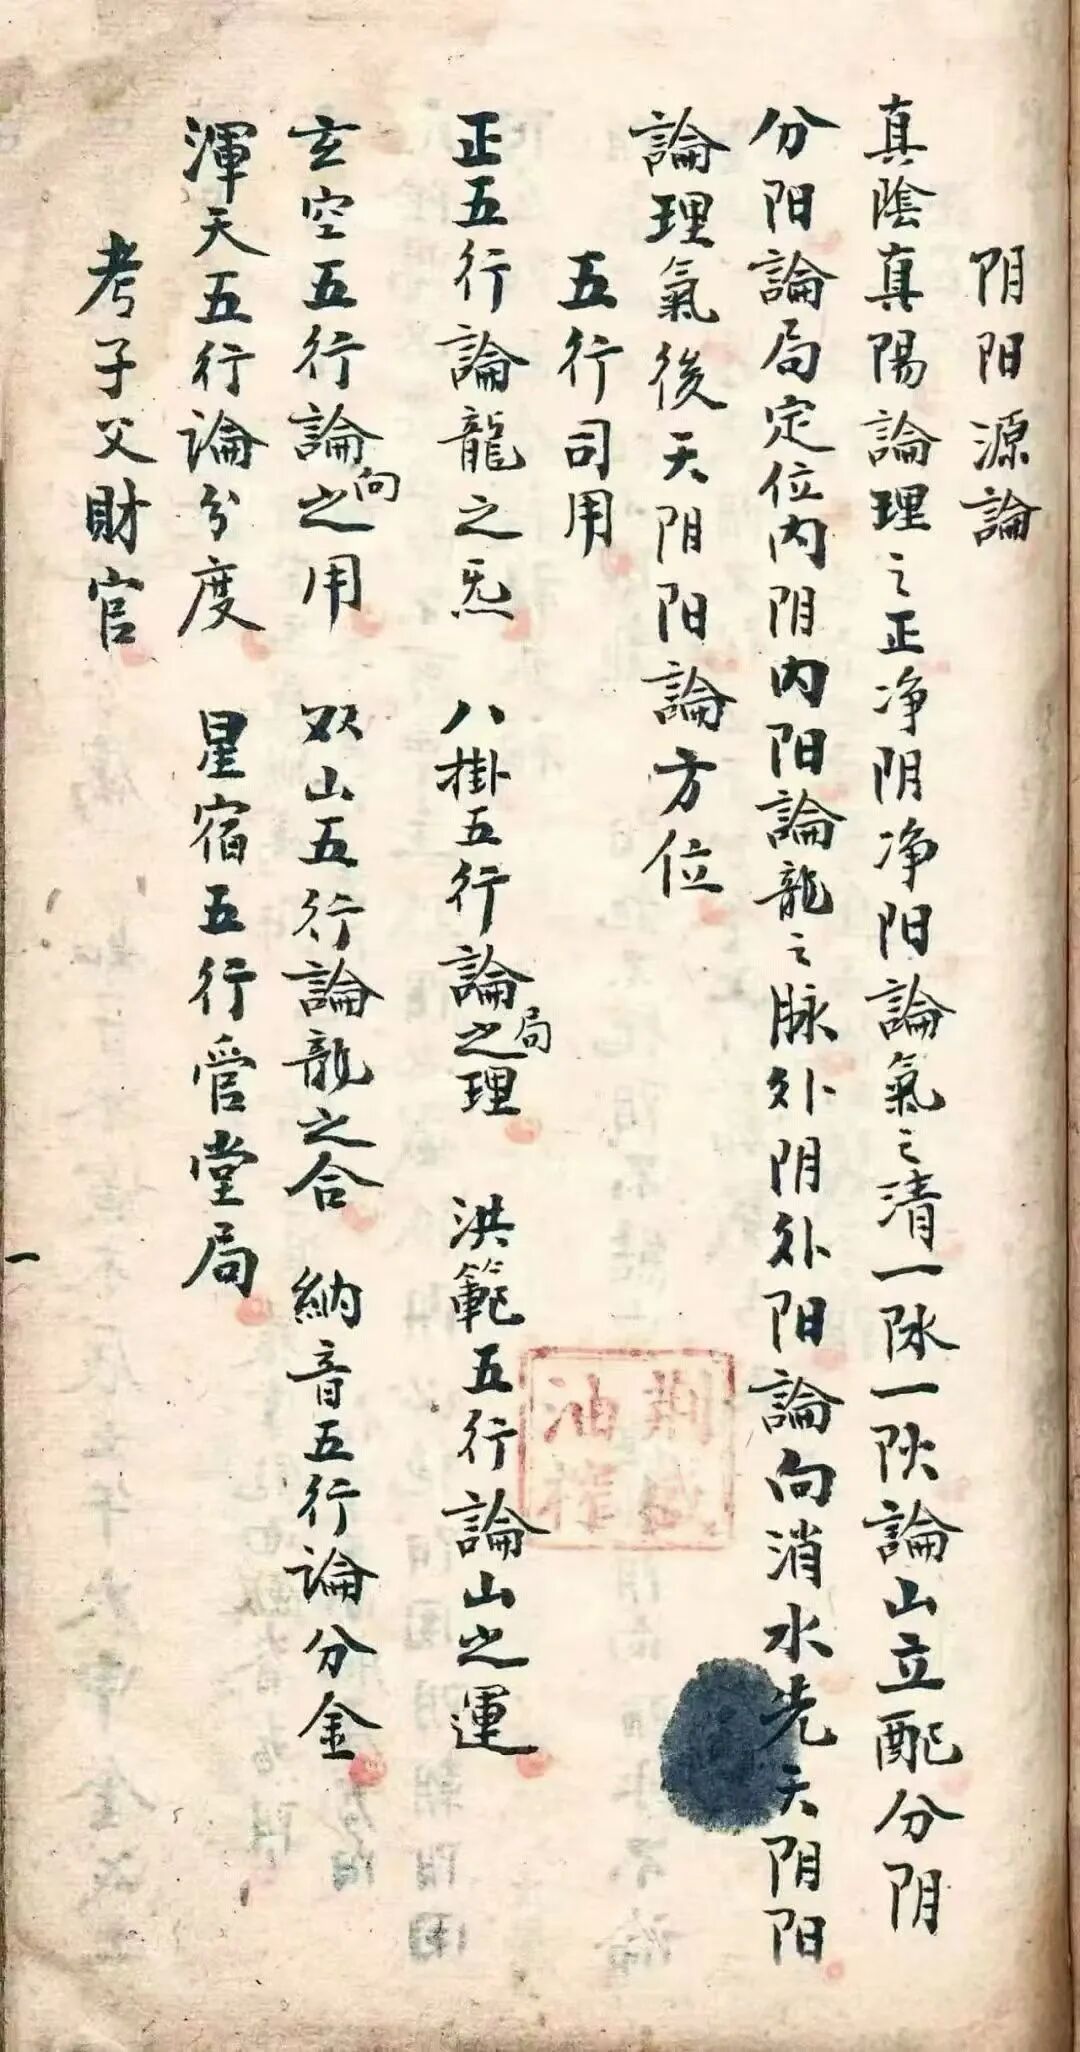 阴阳源論
真陰真陽論理之正净阴净阳論氣之清一阦一阥論山立配分阴
分阳論局定位内阴内阳論龍之脉外阴外阳論向消水先天阴阳
論理氣後天阴阳論方位
五行司用
正五行論龍之炁 八掛五行論局之理 洪範五行論山之運
玄空五行論向之用 双山五行論龍之合 納音五行论分金
渾天五行论分度 星宿五行管堂局
考子父財官
一
油